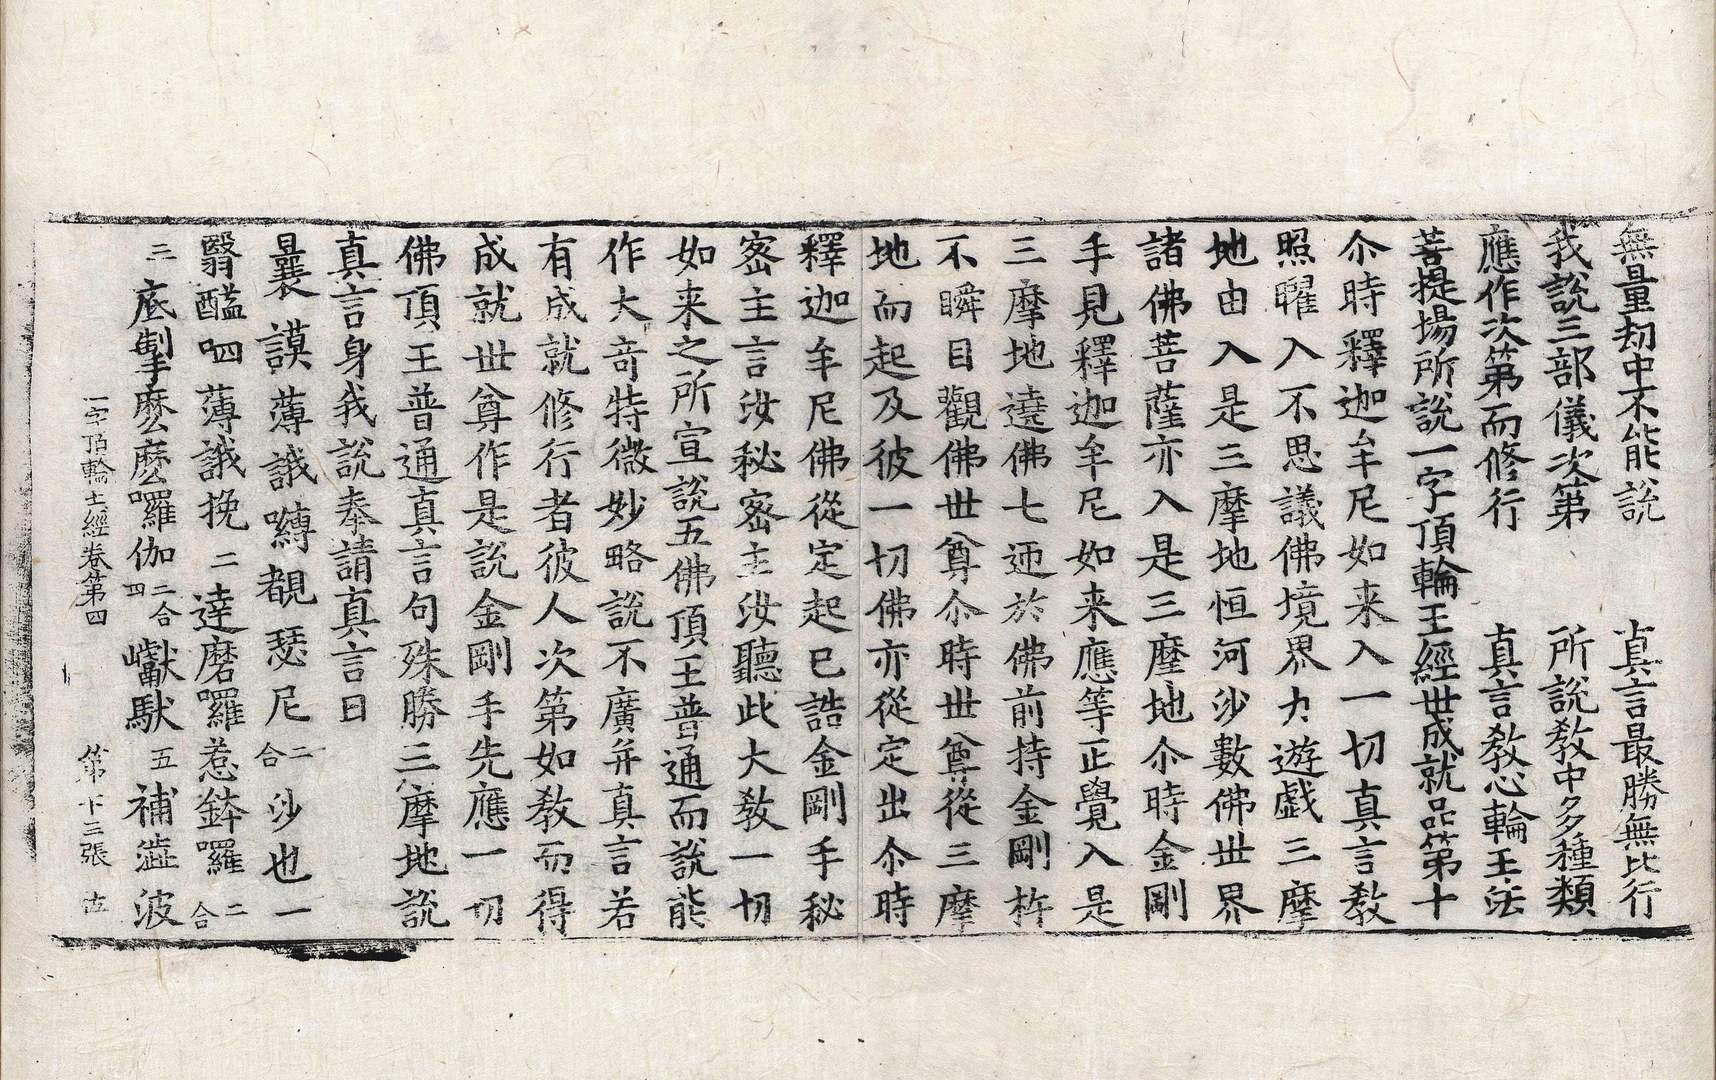 無量劫中不能說　真言最勝無比行
我說三部儀次第　所說教中多種類
應作次第而修行　真言教心輪王法
菩提場所說一字頂輪王經世成就品第十
尒時釋迦牟尼如来入一切真言教
照曜入不思議佛境界力遊戲三摩
地由入是三摩地恒河沙數佛世界
諸佛菩薩亦入是三摩地尒時金剛
手見釋迦牟尼如来應等正覺入是
三摩地遶佛七迊於佛前持金剛杵
不瞬目觀佛世尊尒時世尊從三摩
地而起及彼一切佛亦從定出尒時
釋迦牟尼佛從定起已誥金剛手秘
密主言汝秘密主汝聽此大教一切
如来之所宣說五佛頂王普通而說能
作大竒特微妙略說不廣并真言若
有成就修行者彼人次第如教而得
成就世尊作是說金剛手先應一切
佛頂王普通真言句殊勝三摩地說
真言身我說奉請真言曰
曩謨薄誐嚩覩瑟尼二合沙也一
翳醯呬薄誐挽二達磨囉惹鉢囉二合
三底掣麼麼囉伽二合四巘馱五補澁波
一字頂輪王經卷第四　第十三張